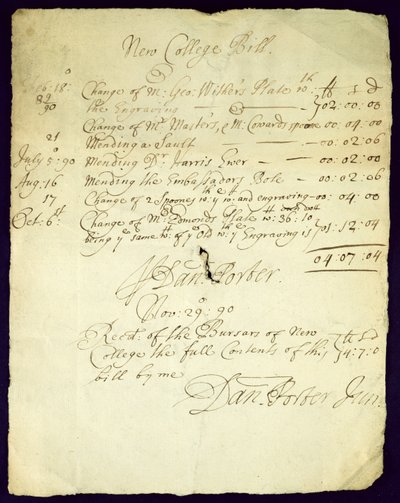 New College Bill.
18. Change of Mr. Geo: Withers Plate wth li s d
90 the Engraving — — 02:00:00
Change of Mr Masters, & Mr Cowards spoone 00:04:00
21 Mending a Sault — — 00:02:06
July 5:90 Mending Dr. Harris Ewer — — 00:02:06
Aug: 16 Mending the Embassadors Bole — 00:02:06
17 Change of 2 Spoones wt. & engraving— 00:04:00
Oct: 6th Change of Mr Edmonds Plate wt: 36:10
being ye same wt: of ye Old wt: ye Engraving is 01:12:04
04:07:04
Dan: Porter.
Nov: 29: 90
Recd: of the Bursars of New li s d
College the full Contents of this 4:7:0
bill by me
Dan: Porter Jun